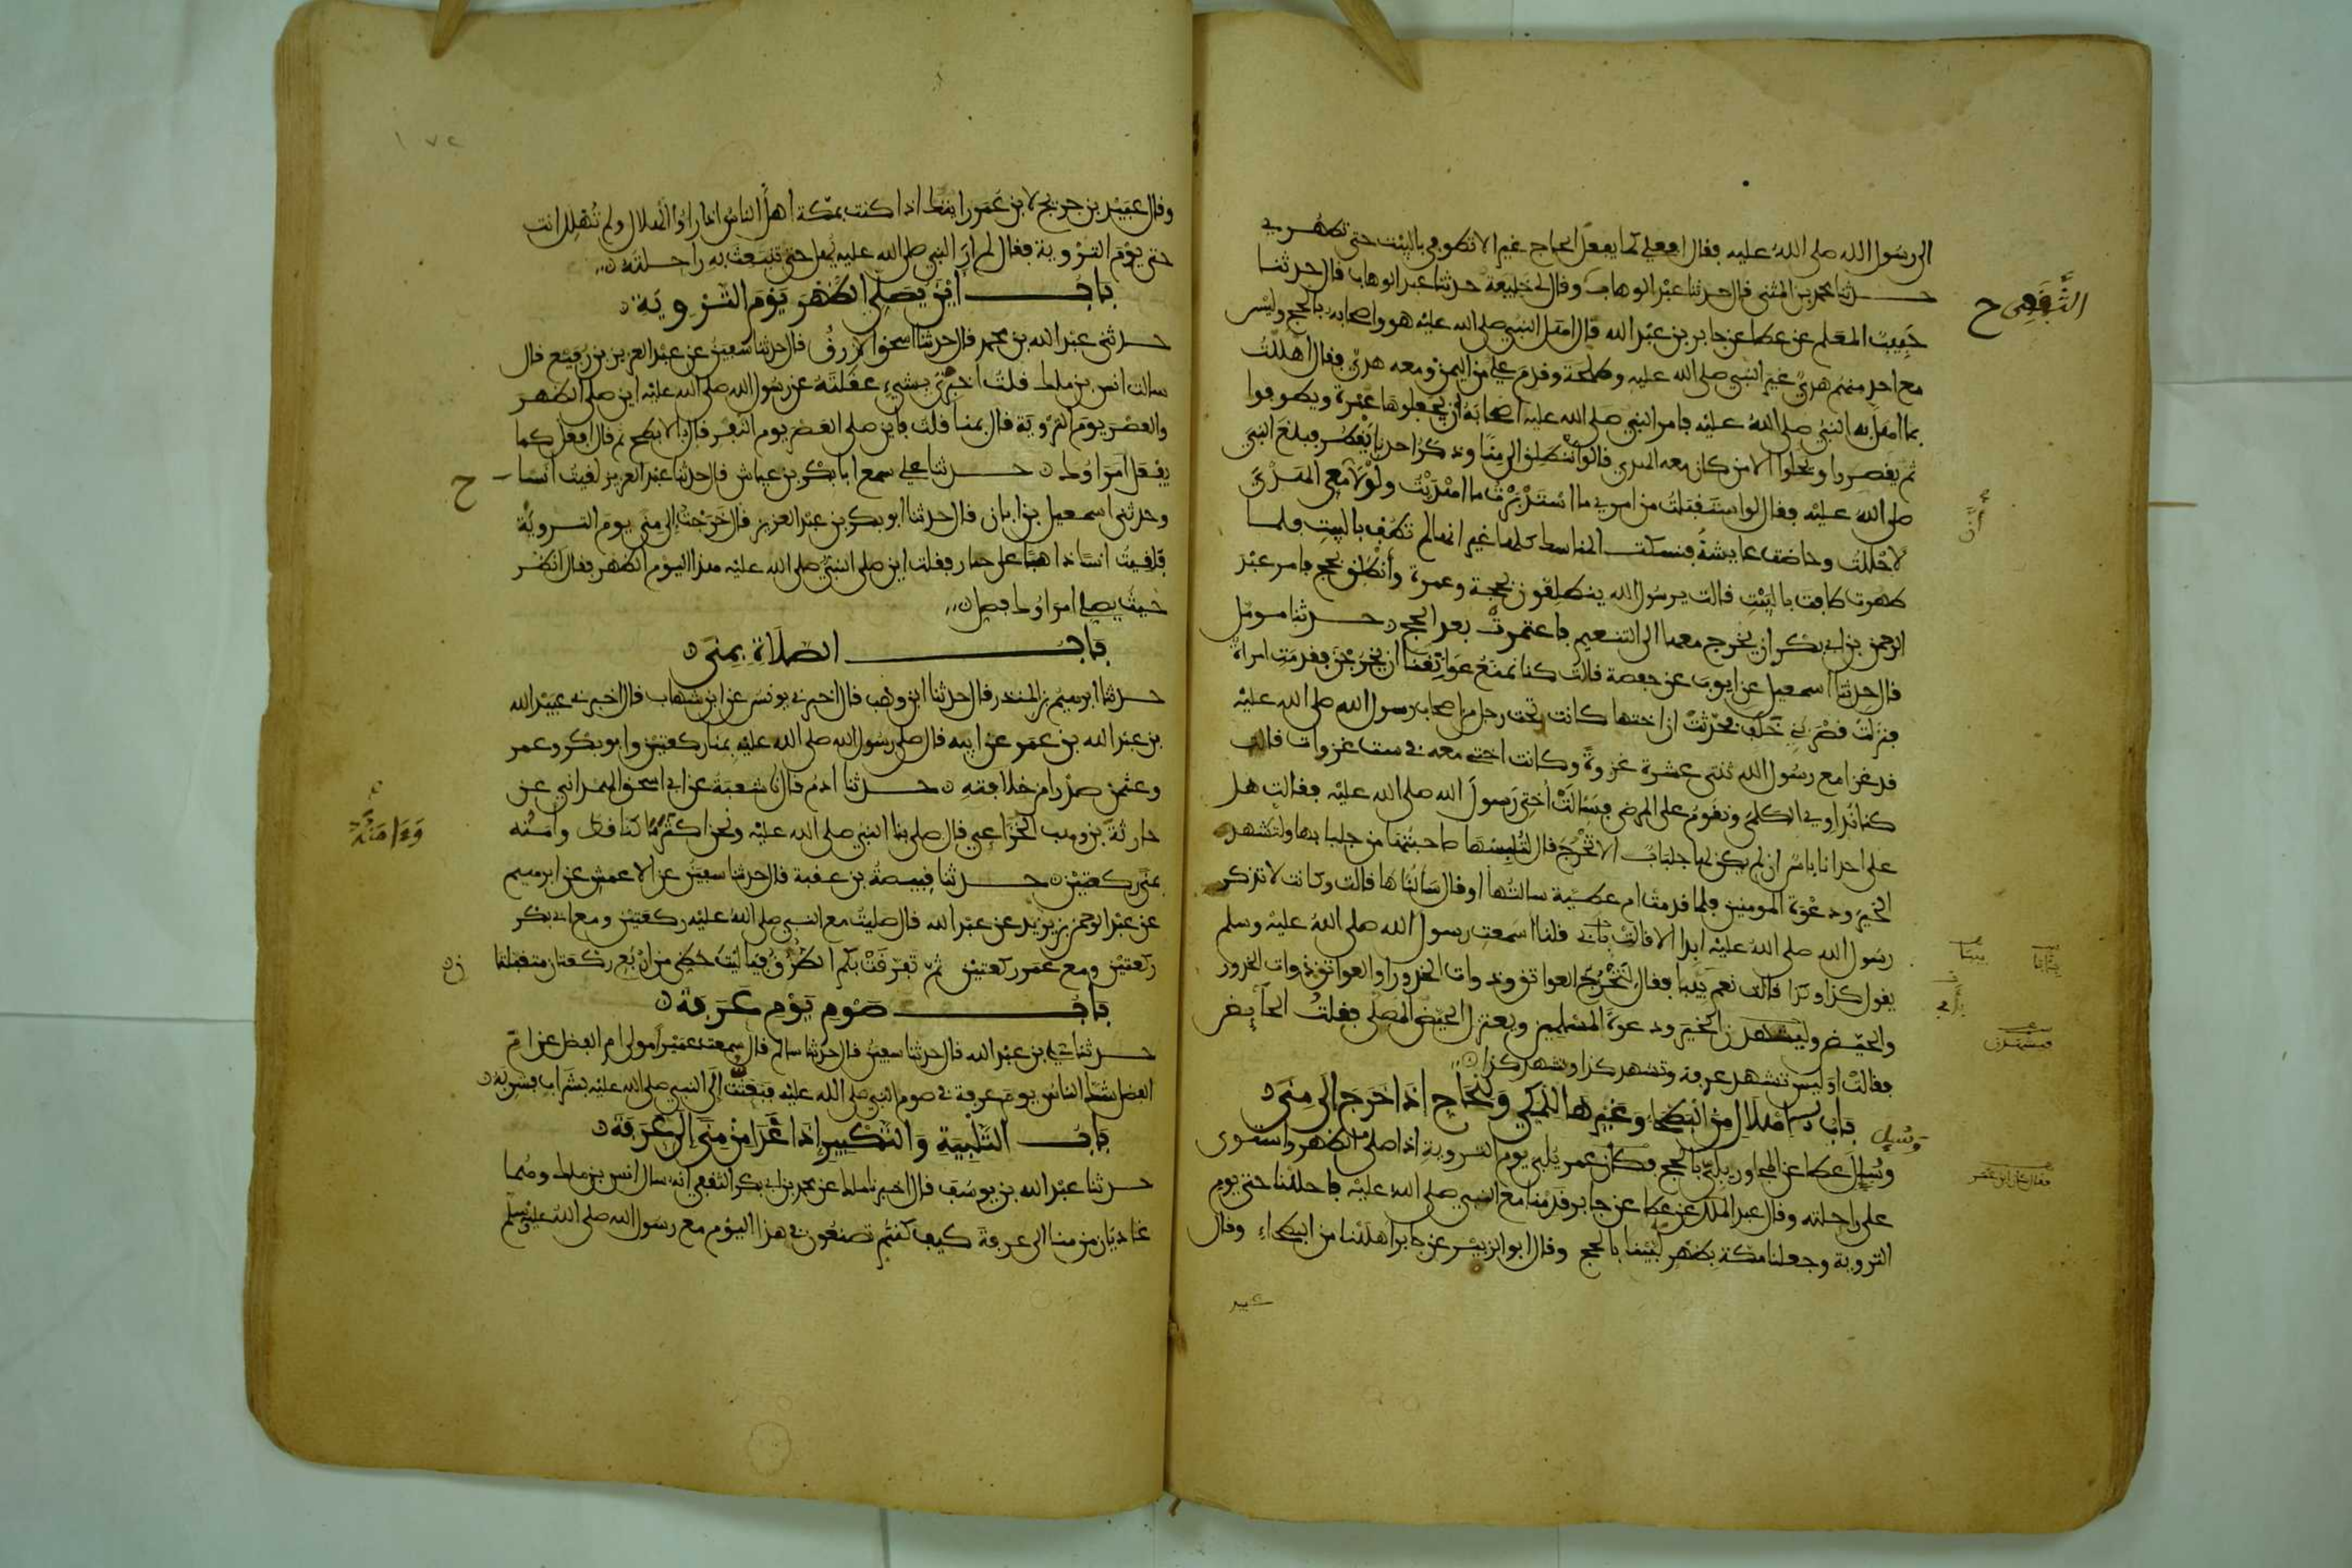 الى رسول الله صلى الله عليه فقال افعلي كما يفعل الحاج غير الا تطوفي بالبيت حتى تطهري
حدثنا محمد بن المثنى قال حدثنا عبد الوهاب وقال لي خليفة حدثنا عبد الوهاب قال حدثنا
الثقفي ح
حبيب المعلم عن عطا عن جابر بن عبد الله قال اهل النبي صلى الله عليه هو واصحابه بالحج وليس
مع احد منهم هدي غير النبي صلى الله عليه وطلحة وقدم علي من اليمن ومعه هدي فقال اهللت
بما اهل به النبي صلى الله عليه فامر النبي صلى الله عليه اصحابه ان يجعلوها عمرة ويطوفوا
ثم يقصروا ويحلوا الا من كان معه الهدي فالوا ننطلق الى منا وذكر احدنا يقطر فبلغ النبي
صلى الله عليه فقال لو استقبلت من امري ما استدبرت ما اهديت ولولا معي الهدي
لاحللت وحاضت عايشة فنسكت المناسك كلها غير انها لم تطف بالبيت فلما
طهرت طافت بالبيت قالت يرسول الله ينطلقون بحجة وعمرة وأنطلق بحج فامر عبد
الرحمن بن ابي بكر ان يخرج معها الى التنعيم فاعتمرت بعد الحج حدثنا مومل
قال حدثنا اسمعيل عن ايوب عن حفصة قالت كنا نمنع عواتقنا ان يخرجن فقدمت امراة
فنزلت قصر بني خلف فحدثت ان اختها كانت تحت رجل من اصحاب رسول الله صلى الله عليه
قد غزا مع رسول الله ثنتي عشرة غزوة وكانت اختي معه في ست غزوات قالت
كنا نداوي الكلمى ونقوم على المرضى فسالت اختي رسول الله صلى الله عليه فقالت هل
على احدانا باس ان لم يكن لها جلباب الا تخرج قال لتلبسها صاحبتها من جلبابها ولتشهد
الخير ودعوة المومنين فلما قدمت ام عطية سالتها او قال سالناها قالت وكانت لا تذكر
رسول الله صلى الله عليه ابدا الا قالت بأبي فلنا اسمعت رسول الله صلى الله عليه وسلم
يقول كذا وكذا قالت نعم بيبا فقال لتخرج العواتق وذوات الخدور او العواتق ذوات الخدور
والحيض وليشهدن الخير ودعوة المسلمين ويعتزل الحيض المصلى فقلت الحايض
فقالت اوليس تشهد عرفة وتشهد كذا وتشهد كذا
باب الاهلال من البطحاء وغيرها للمكي وللحاج اذا خرج الى منى
وسيل
وسيل عطا عن المجاور يلبي بالحج فكان عمر يلبي يوم التروية اذا صلى الظهر واستوى
على راحلته وقال عبد الملك عن عطا عن جابر قدمنا مع النبي صلى الله عليه فاحللنا حتى يوم
التروية وجعلنا مكة بظهر لبينا بالحج وقال ابو الزبير عن جابر اهللنا من البطحاء وقال
عبيد
١٧٢
وقال عبيد بن جريج لابن عمر رايتك اذا كنت بمكة اهل الناس اذا راوا الهلال ولم تهلل انت
حتى يوم التروية فقال لم ار النبي صلى الله عليه يهل حتى تنبعث به راحلته
باب اين يصلي الظهر يوم التروية
حدثني عبد الله بن محمد قال حدثنا اسحق الازرق قال حدثنا سفين عن عبد العزيز بن رفيع قال
سالت انس بن ملك قلت اخبرني بشيء عقلته عن رسول الله صلى الله عليه اين صلى الظهر
والعصر يوم التروية قال بمنا قلت فاين صلى العصر يوم النفر قال بالابطح ثم قال افعل كما
يفعل امراوك حدثنا علي سمع ابا بكر بن عياش قال حدثنا عبد العزيز لقيت انسا ح
وحدثني اسمعيل بن ابان قال حدثنا ابو بكر بن عبد العزيز قال خرجت الى منى يوم التروية
فلقيت انسا ذاهبا على حمار فقلت اين صلى النبي صلى الله عليه هذا اليوم الظهر فقال انظر
حيث يصلي امراوك فصل
باب الصلاة بمنى
حدثنا ابرهيم بن المنذر قال حدثنا ابن وهب قال اخبرني يونس عن ابن شهاب قال اخبرني عبيد الله
بن عبد الله بن عمر عن ابيه قال صلى رسول الله صلى الله عليه بمنا ركعتين وابو بكر وعمر
وعثمن صدرا من خلافته حدثنا ادم قال نا شعبة عن ابي اسحق الهمداني عن
حارثة بن وهب الخزاعي قال صلى بنا النبي صلى الله عليه ونحن اكثر ما كنا قط وامنه
وءامنه
بمنى ركعتين حدثنا قبيصة بن عقبة قال حدثنا سفين عن الاعمش عن ابرهيم
عن عبد الرحمن بن يزيد عن عبد الله قال صليت مع النبي صلى الله عليه ركعتين ومع ابي بكر
ركعتين ومع عمر ركعتين ثم تفرقت بكم الطرق فيا ليت حظي من اربع ركعتان متقبلتان
باب صوم يوم عرفة
حدثنا علي بن عبد الله قال حدثنا سفين قال حدثنا سالم قال سمعت عميرا مولى ام الفضل عن ام
الفضل شك الناس يوم عرفة في صوم النبي صلى الله عليه فبعثت الى النبي صلى الله عليه بشراب فشربه
باب التلبية والتكبير اذا غدا من منى الى عرفة
حدثنا عبد الله بن يوسف قال اخبرنا ملك عن محمد بن ابي بكر الثقفي انه سال انس بن ملك وهما
غاديان من منا الى عرفة كيف كنتم تصنعون في هذا اليوم مع رسول الله صلى الله عليه وسلم